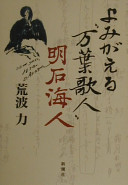 よみがえる
“万葉歌人”
明石海人
荒波 力
新潮社